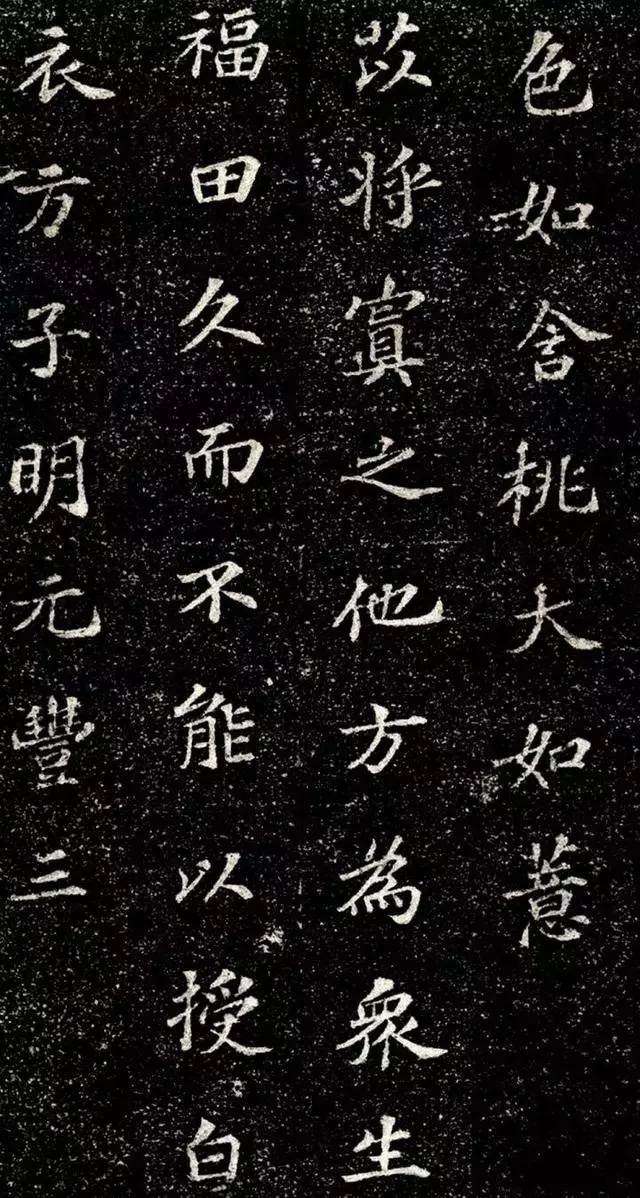 色如含桃大如薏
苡将寘之他方為衆生
福田久而不能以授白
衣方子明元豐三